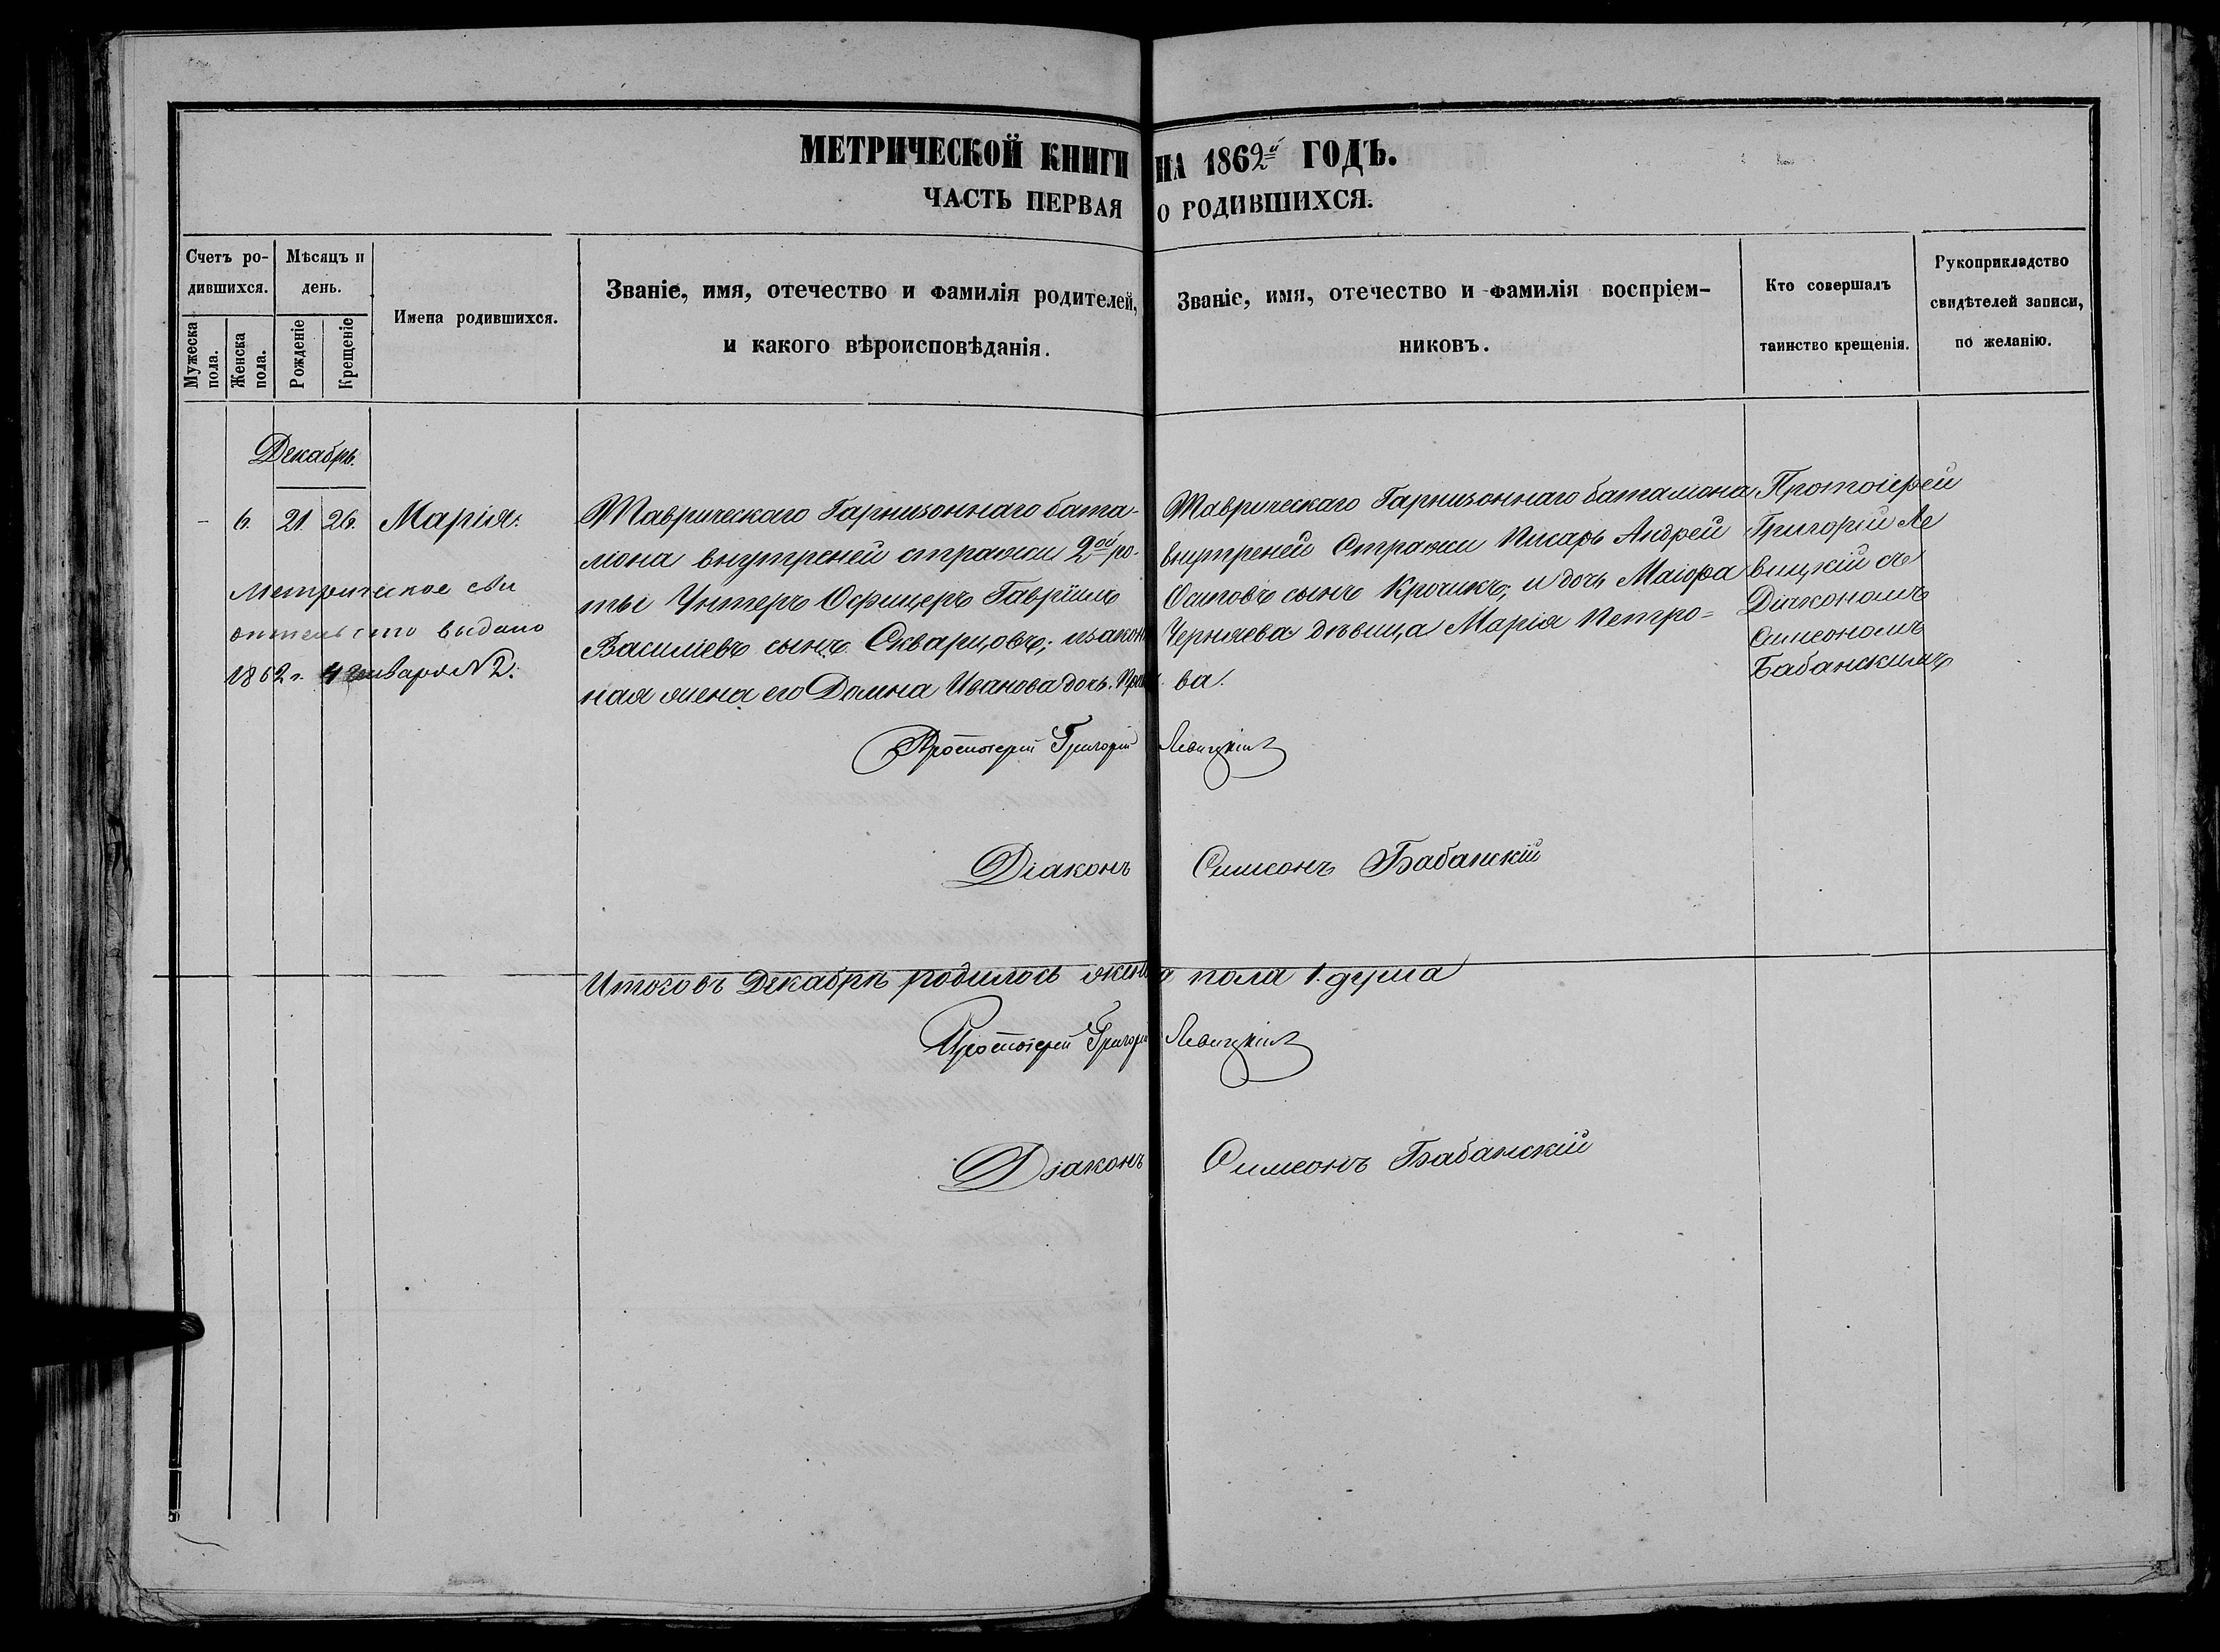 МЕТРИЧЕСКОЙ КНИГИ НА 1862й ГОДЪ.
ЧАСТЬ ПЕРВАЯ О РОДИВШИХСЯ.
Счетъ родившихся.
Мужеска пола.
Женска пола.
Мѣсяцъ и день.
Рожденіе
Крещеніе
Имена родившихся.
Званіе, имя, отечество и фамилія родителей,
и какого вѣроисповѣданія.
Званіе, имя, отечество и фамилія воспріем-
никовъ.
Кто совершалъ
таинство крещенія.
Рукоприкладство
свидѣтелей записи,
по желанію.
Декабрь.
- 6. 21. 26. Марія.
Метрическое сви
дѣтельство выдано
1862 г. 4 Января N 2.
Таврическаго Гарнизоннаго бата-
лiона внутреней стражи 2ой ро-
ты Унтеръ Офицеръ Гавріилъ
Василіевъ сынъ Скварцовъ; и закон
ная жена его Домна Иванова дочь.
Таврическаго Гарнизоннаго баталіона
внутреней Стражи Писарь Андрей
Осиповъ сынъ Крочикъ; и дочь Маіора
Черняева дѣвица Марія Петро=
ва.
Протоіерей
Григорій Ле
вицкій съ
Діакономъ
Симеономъ
Бабанскимъ
Протоіерей Григорій Левицкій
Діаконъ Симеонъ Бабанскій
Итого въ Декабрѣ родилось женска пола 1. душа
Протоіерей Григорій Левицкій
Діаконъ Симеонъ Бабанскій